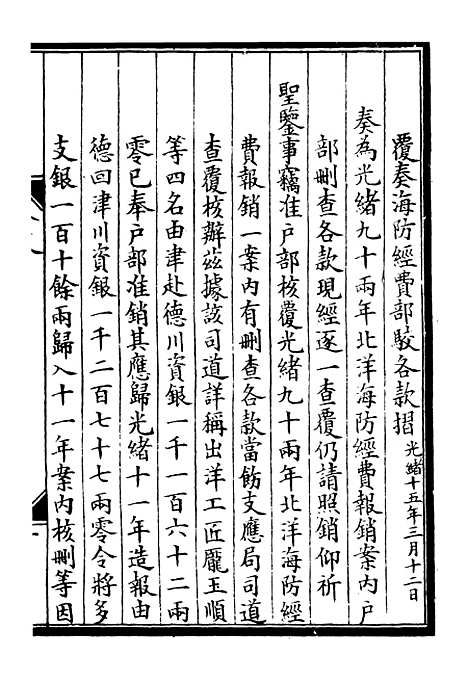 覆奏海防經費部駮各款摺光緒十五年三月十二日
奏為光緒九十兩年北洋海防經費報銷案內戶
部刪查各款現經逐一查覆仍請照銷仰祈
聖鑒事竊准戶部核覆光緒九十兩年北洋海防經
費報銷一案內有刪查各款當飭支應局司道
查覆核辦茲據該司道詳稱出洋工匠龎玉順
等四名由津赴德川資銀一千一百六十二兩
零已奉戶部准銷其應歸光緒十一年造報由
德回津川資銀一千二百七十七兩零令將多
支銀一百十餘兩歸入十一年案內核刪等因